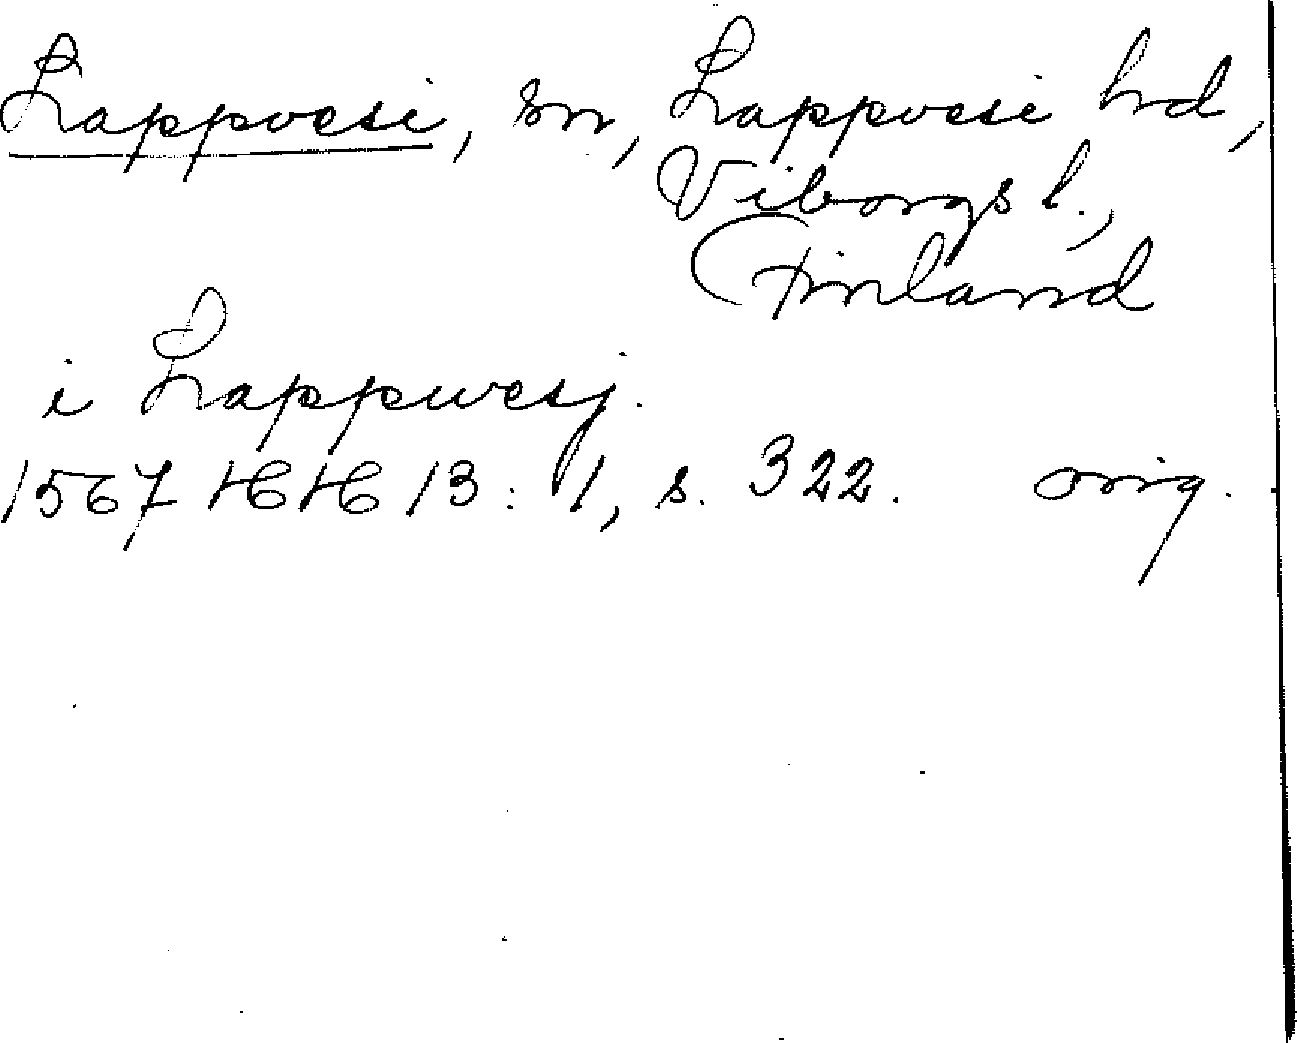 Lappvesi, sn, Lappvesi hd,
Viborgs l.,
Finland
i Lappwesj.
1567 HH 13:1, s. 322. orig.